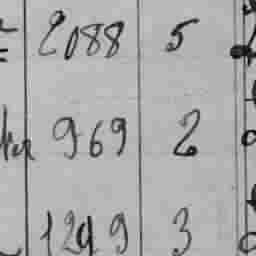 2088 5
969 2
1249 3